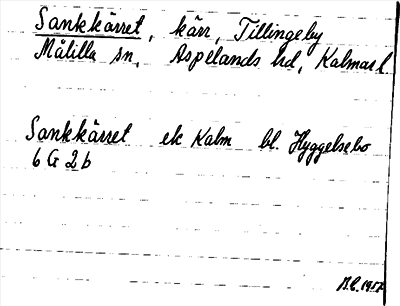 Sankkärret, kärr, Tillingeby
Målilla sn, Aspelands hd, Kalmar l
Sankkärret ek Kalm bl. Hyggelsebo
6 G 2 b
1957